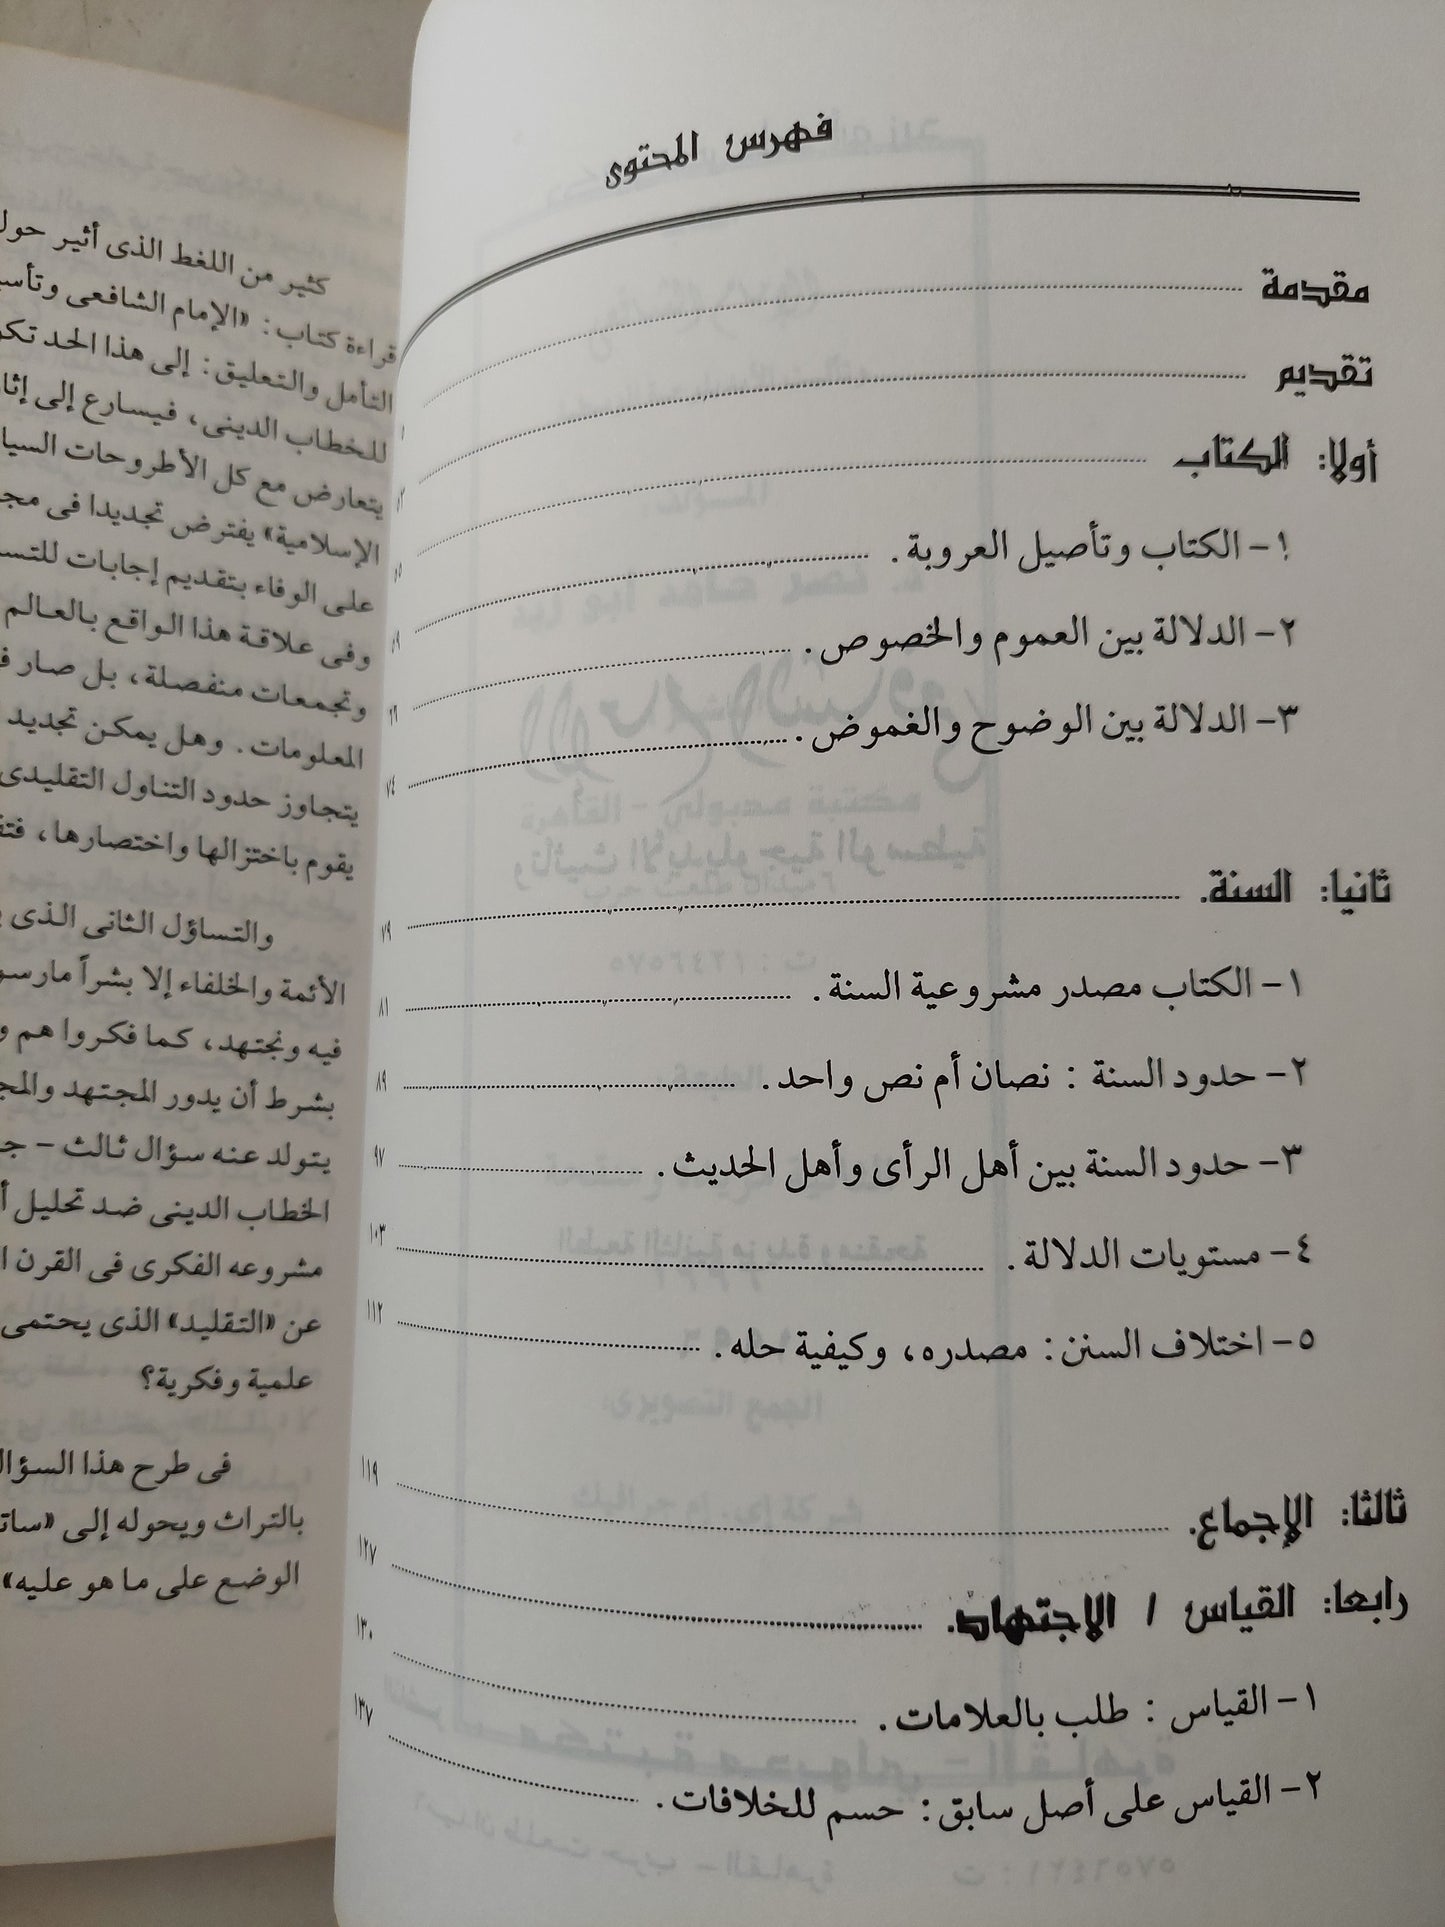 فهرس المحتوى
مقدمة
تقديم
أولا: الكتاب
١- الكتاب وتأصيل العروبة.
٢- الدلالة بين العموم والخصوص.
٣- الدلالة بين الوضوح والغموض. ٧٤
ثانيا: السنة. ٧٩
١- الكتاب مصدر مشروعية السنة. ٨١
٢- حدود السنة : نصان أم نص واحد. ٨٩
٣- حدود السنة بين أهل الرأى وأهل الحديث. ٩٧
٤- مستويات الدلالة. ١٠٣
٥- اختلاف السنن: مصدره، وكيفية حله. ١١٢
ثالثا: الإجماع. ١١٩
رابعا: القياس / الاجتهاد. ١٢٧
١- القياس : طلب بالعلامات. ١٣٠
٢- القياس على أصل سابق: حسم للخلافات. ١٣٧
كثير من اللغط الذى أثير حول
قراءة كتاب: «الإمام الشافعى
التأمل والتعليق: إلى هذا الحد
للخطاب الدينى، فيسارع إلى
يتعارض مع كل الأطروحات
الإسلامية» يفترض تجديدا فى
على الوفاء بتقديم إجابات
وفى علاقة هذا الواقع بالعالم
وتجمعات منفصلة، بل صار
المعلومات. وهل يمكن تجديد
يتجاوز حدود التناول التقليدى
يقوم باختزالها واختصارها،
والتساؤل الثانى الذى
الأئمة والخلفاء إلا بشراً
فيه ونجتهد، كما فكروا هم
بشرط أن يدور المجتهد
يتولد عنه سؤال ثالث -
الخطاب الدينى ضد تحليل
مشروعه الفكرى فى القرن
عن «التقليد» الذى يحتمى
علمية وفكرية؟
فى طرح هذا السؤال
بالتراث ويحوله إلى
الوضع على ما هو عليه»